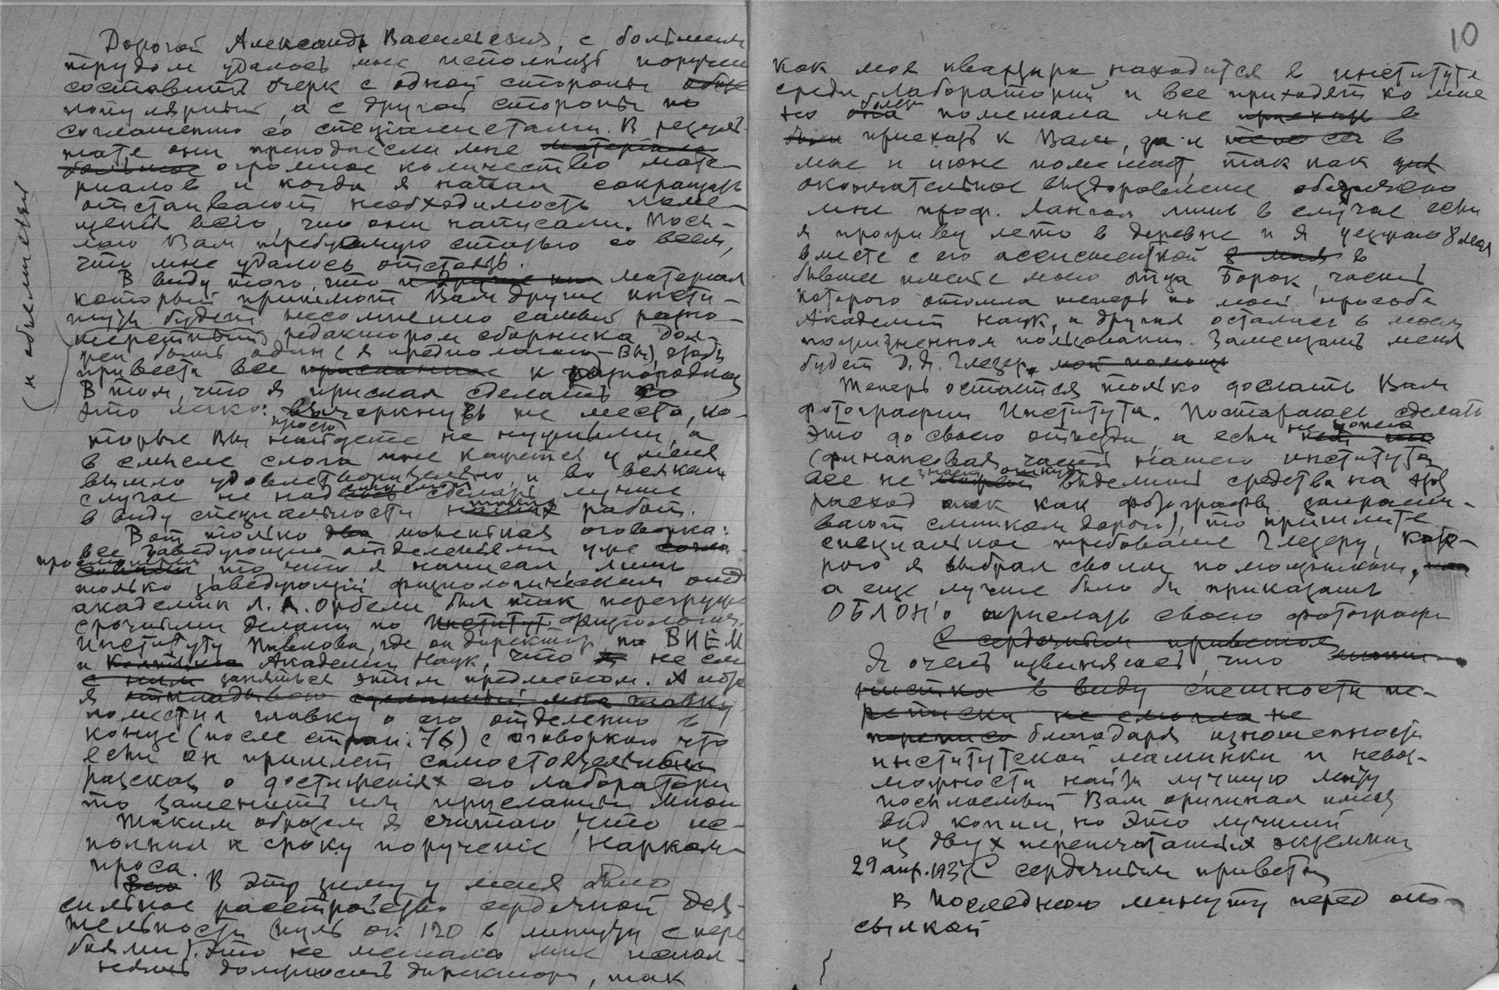 10
Дорогой Александр Васильевич, с большим
трудом удалось мне исполнить поручен
составить очерк с одной стороны
популярный, а с другой стороны по
соглашению со специалистами. В резуль-
тате они преподнесли мне материала
большое огромное количество мате-
риалов и когда я начал сокращать
отстаивают необходимость поме-
щения всего, что они написали. Посы-
лаю Вам требуемую статью со всем,
что мне удалось отстоять.
(и объемистый)
В виду того, что и другие материал
который пришлют Вам другие инсти-
туты будет несомненно самый разно-
шерстный, редактором сборника дол-
жен быть один (я предполагаю - Вы), чтобы
привести все присланное к однородному
В том, что я прислал сделать
это легко: вычеркнуть те места, ко-
просто
торые Вы найдете не нужными, а
в смысле слога мне кажется у меня
вышло удовлетворительно и во всяком
случае не над сделать лучше
в виду специальности наших работ.
Вот только два маленькая оговорка:
все заведующие отделениями уже
просмотрели то, что я написал, лишь
только заведующий физиологическим отд
академик Л. А. Орбели был так перегружен
срочными делами по Институт. физиологич.
Институту Павлова, где он директор, по ВИЕМ
и Академии Наук, что не см
с ним заняться этим предметом. А
я откладываю сделанный мною главку
поместил главку о его отделении в
конце (после стран. 76) с оговоркой что
если он пришлет самостоятельный
рассказ о достижениях его лаборатори
то заменить им присланный мной
Таким образом я считаю, что ис-
полнил к сроку поручение Нарком-
проса.
В эту зиму у меня было
сильное расстройство сердечной дея-
тельности (пульс ок. 120 в минуту с пере
боями). Это не мешало мне испол-
нять должность директора, так
как моя квартира находится в институте
среди лабораторий и все приходят ко мне
но она более помешала мне приехать в
приехать к Вам, да и в
мае и июне помешает, так как
окончательное выздоровление обещано
мне проф. Лангом лишь в случае если
я проживу лето в деревне и я уезжаю 8 мая
вместе с его ассистенткой в мая в
бывшее имение моего отца Борок, часть
которого отошла теперь по моей просьбе
Академии Наук, а другая осталась в моем
пожизненном пользовании. Замещать меня
будет Д. Я. Глезер, мой помощ
Теперь остается только дослать Вам
фотографии Института. Постараюсь сделать
это до своего отъезда, а если не
(финансовая часть нашего института
все не найдет откуда выделить средства на этот
расход так как фотографы запраши-
вают слишком дорого), то пришлите
специальное требование Глезеру, кото-
рого я выбрал своим помощником,
а еще лучше было бы приказать
ОБЛОНО прислать своего фотографа
С сердечным приветом
Я очень извиняюсь, что
в виду спешности пе-
реписки не смогла не
благодаря изношенности
институтской машинки и невоз-
можности найти лучшую ленту
посылаемый Вам оригинал имеет
вид копии, но это лучший
из двух перепечатанных экземпляр
29 апр. 1937 С сердечным приветом
В последнюю минуту перед от-
сылкой